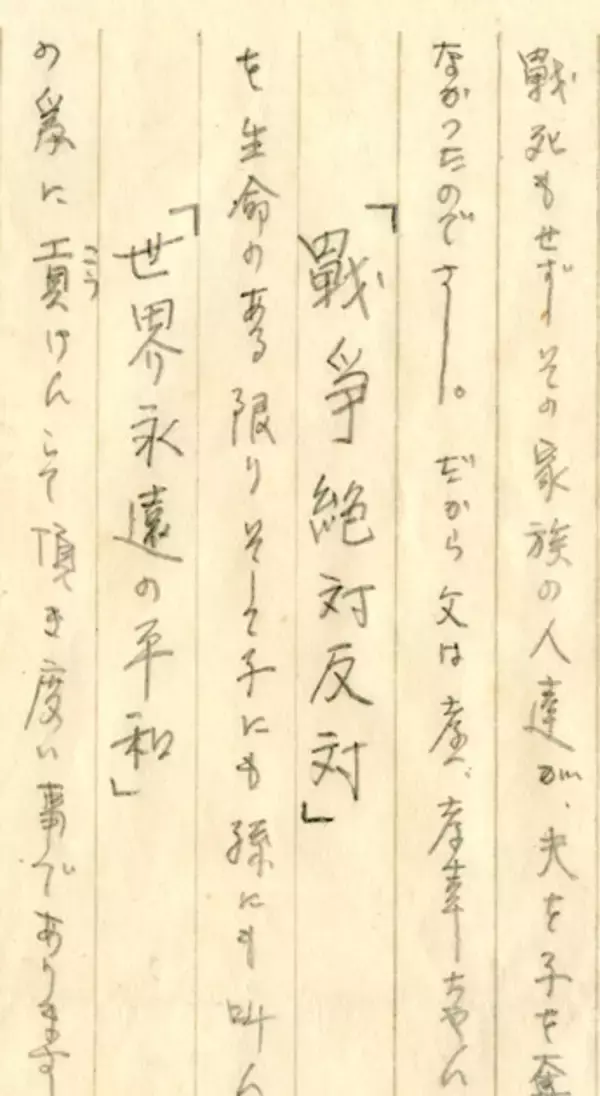 戰死もせず、その家族の人達が、夫を子を奪
なかったのです―。だから父は
「戰爭絶対反対」
を生命のある限りそして子にも孫にも叫ん
「世界永遠の平和」
の爲に貢こうけんして頂き度い事であります